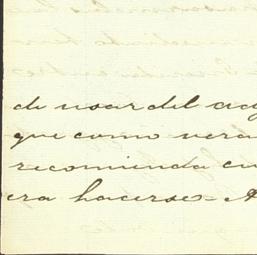 de usar del
que como vera
recomienda
era hacerse - A